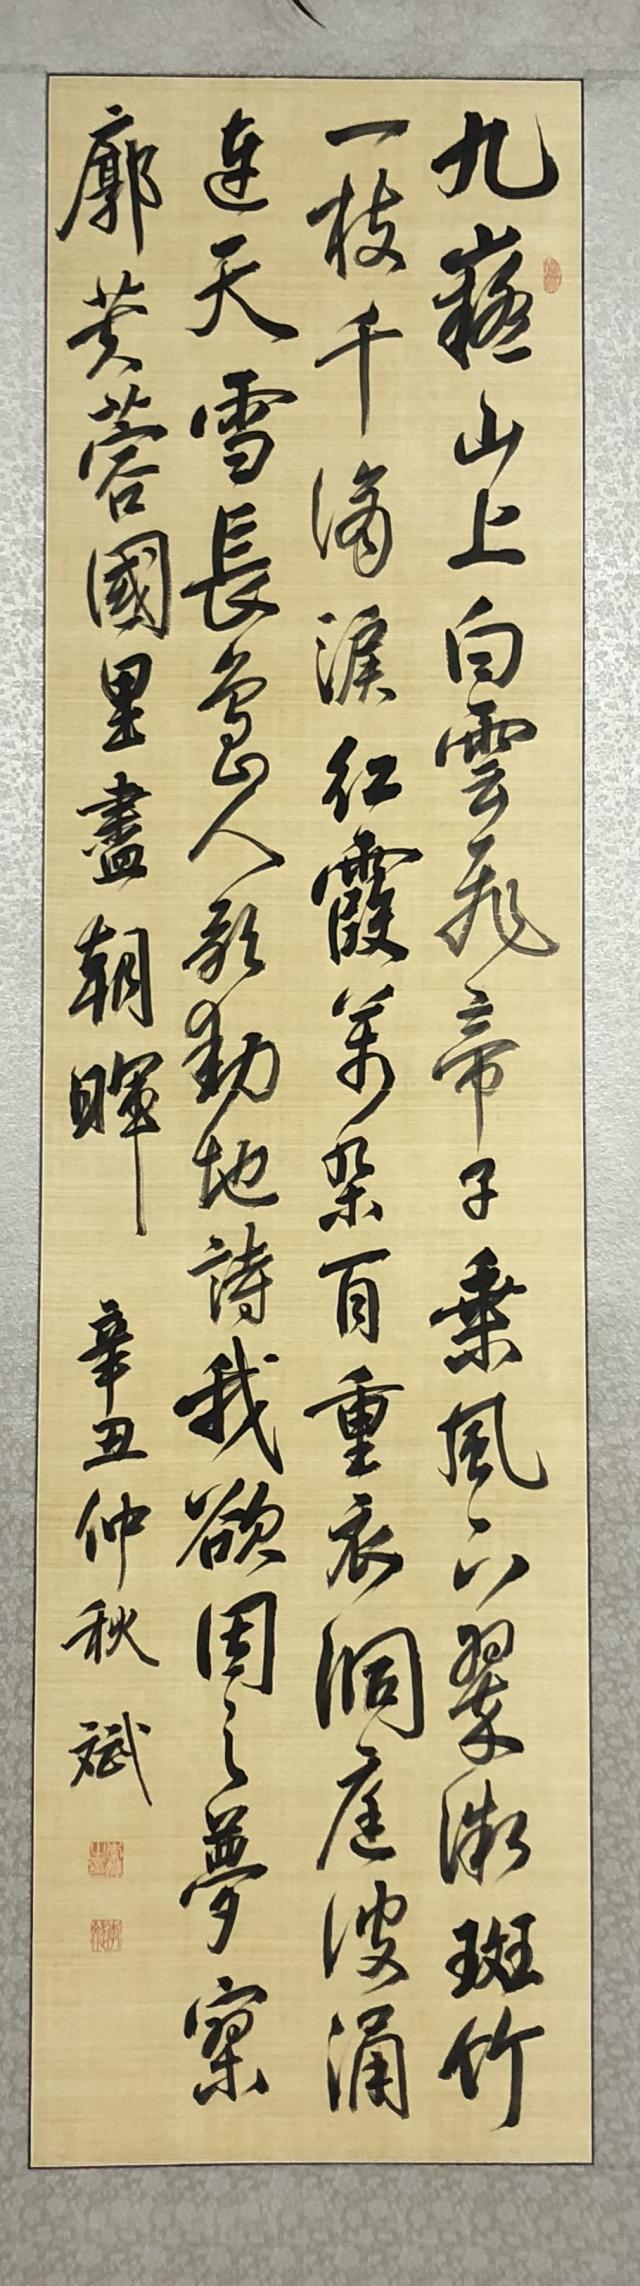 九嶷山上白雲飛帝子乘風下翠微斑竹
一枝千滴淚紅霞萬朵百重衣洞庭波涌
連天雪長島人歌動地詩我欲因之夢寥
廓芙蓉國里盡朝暉
辛丑仲秋 斌